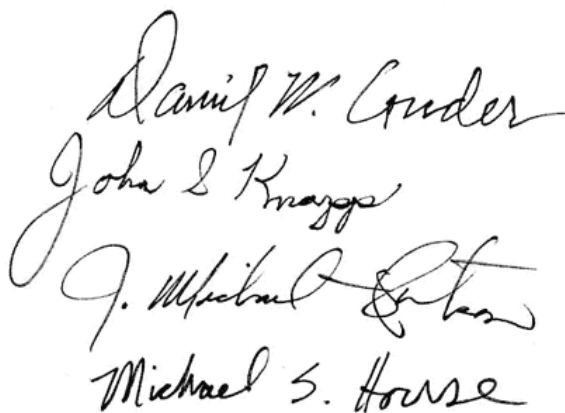 Daniel W. Couder
John S Knapp
J. Michael
Michael S. House